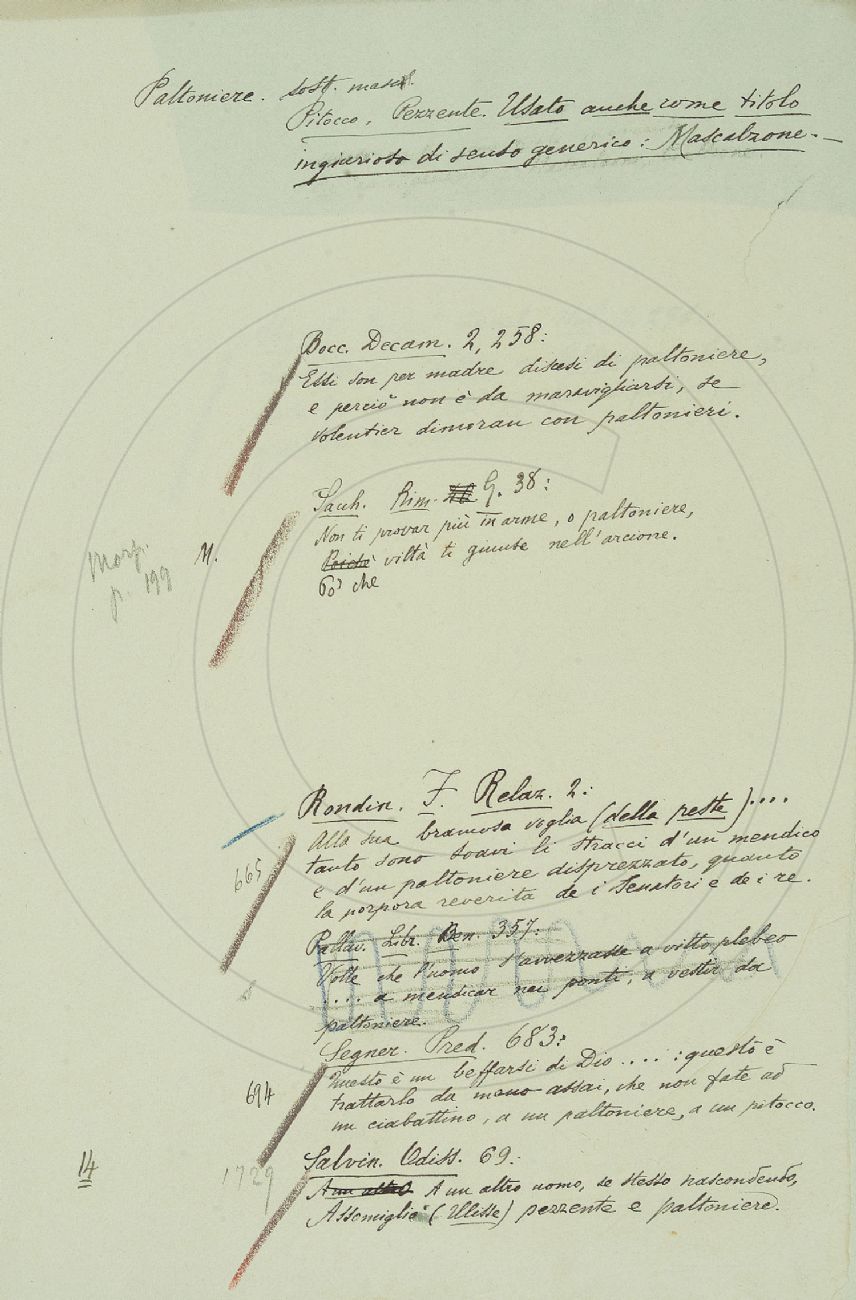 Paltoniere. sost. masch.
Pitocco, Pezzente. Usato anche come titolo
ingiurioso di senso generico: Mascalzone. —
Bocc. Decam. 2, 258:
Essi son per madre discesi di paltoniere,
e perciò non è da maravigliarsi, se
volentier dimoran con paltonieri.
Sacch. Rim. G. 38:
Non ti provar più in arme, o paltoniere,
Poichè viltà ti giunse nell'arcione.
Po' che
M.
p. 199
Rondin. F. Relaz. 2:
Alla sua bramosa voglia (della peste)....
tanto sono soavi li stracci d'un mendico
e d'un paltoniere disprezzato, quanto
665
la porpora reverita de i Senatori e de i re.
Pallav. Libr. Ben. 357:
Volle che l'uomo s'avvezzasse a vitto plebeo
.... a mendicar nei ponti, a vestir da
paltoniere.
Segner. Pred. 683:
Questo è un beffarsi di Dio ....: questo è
694 trattarlo da meno assai, che non fate ad
un ciabattino, a un paltoniere, a un pitocco.
14
1729
Salvin. Odiss. 69:
A un altro A un altro uomo, se stesso nascondendo,
Assomiglio (Ulisse) pezzente e paltoniere.